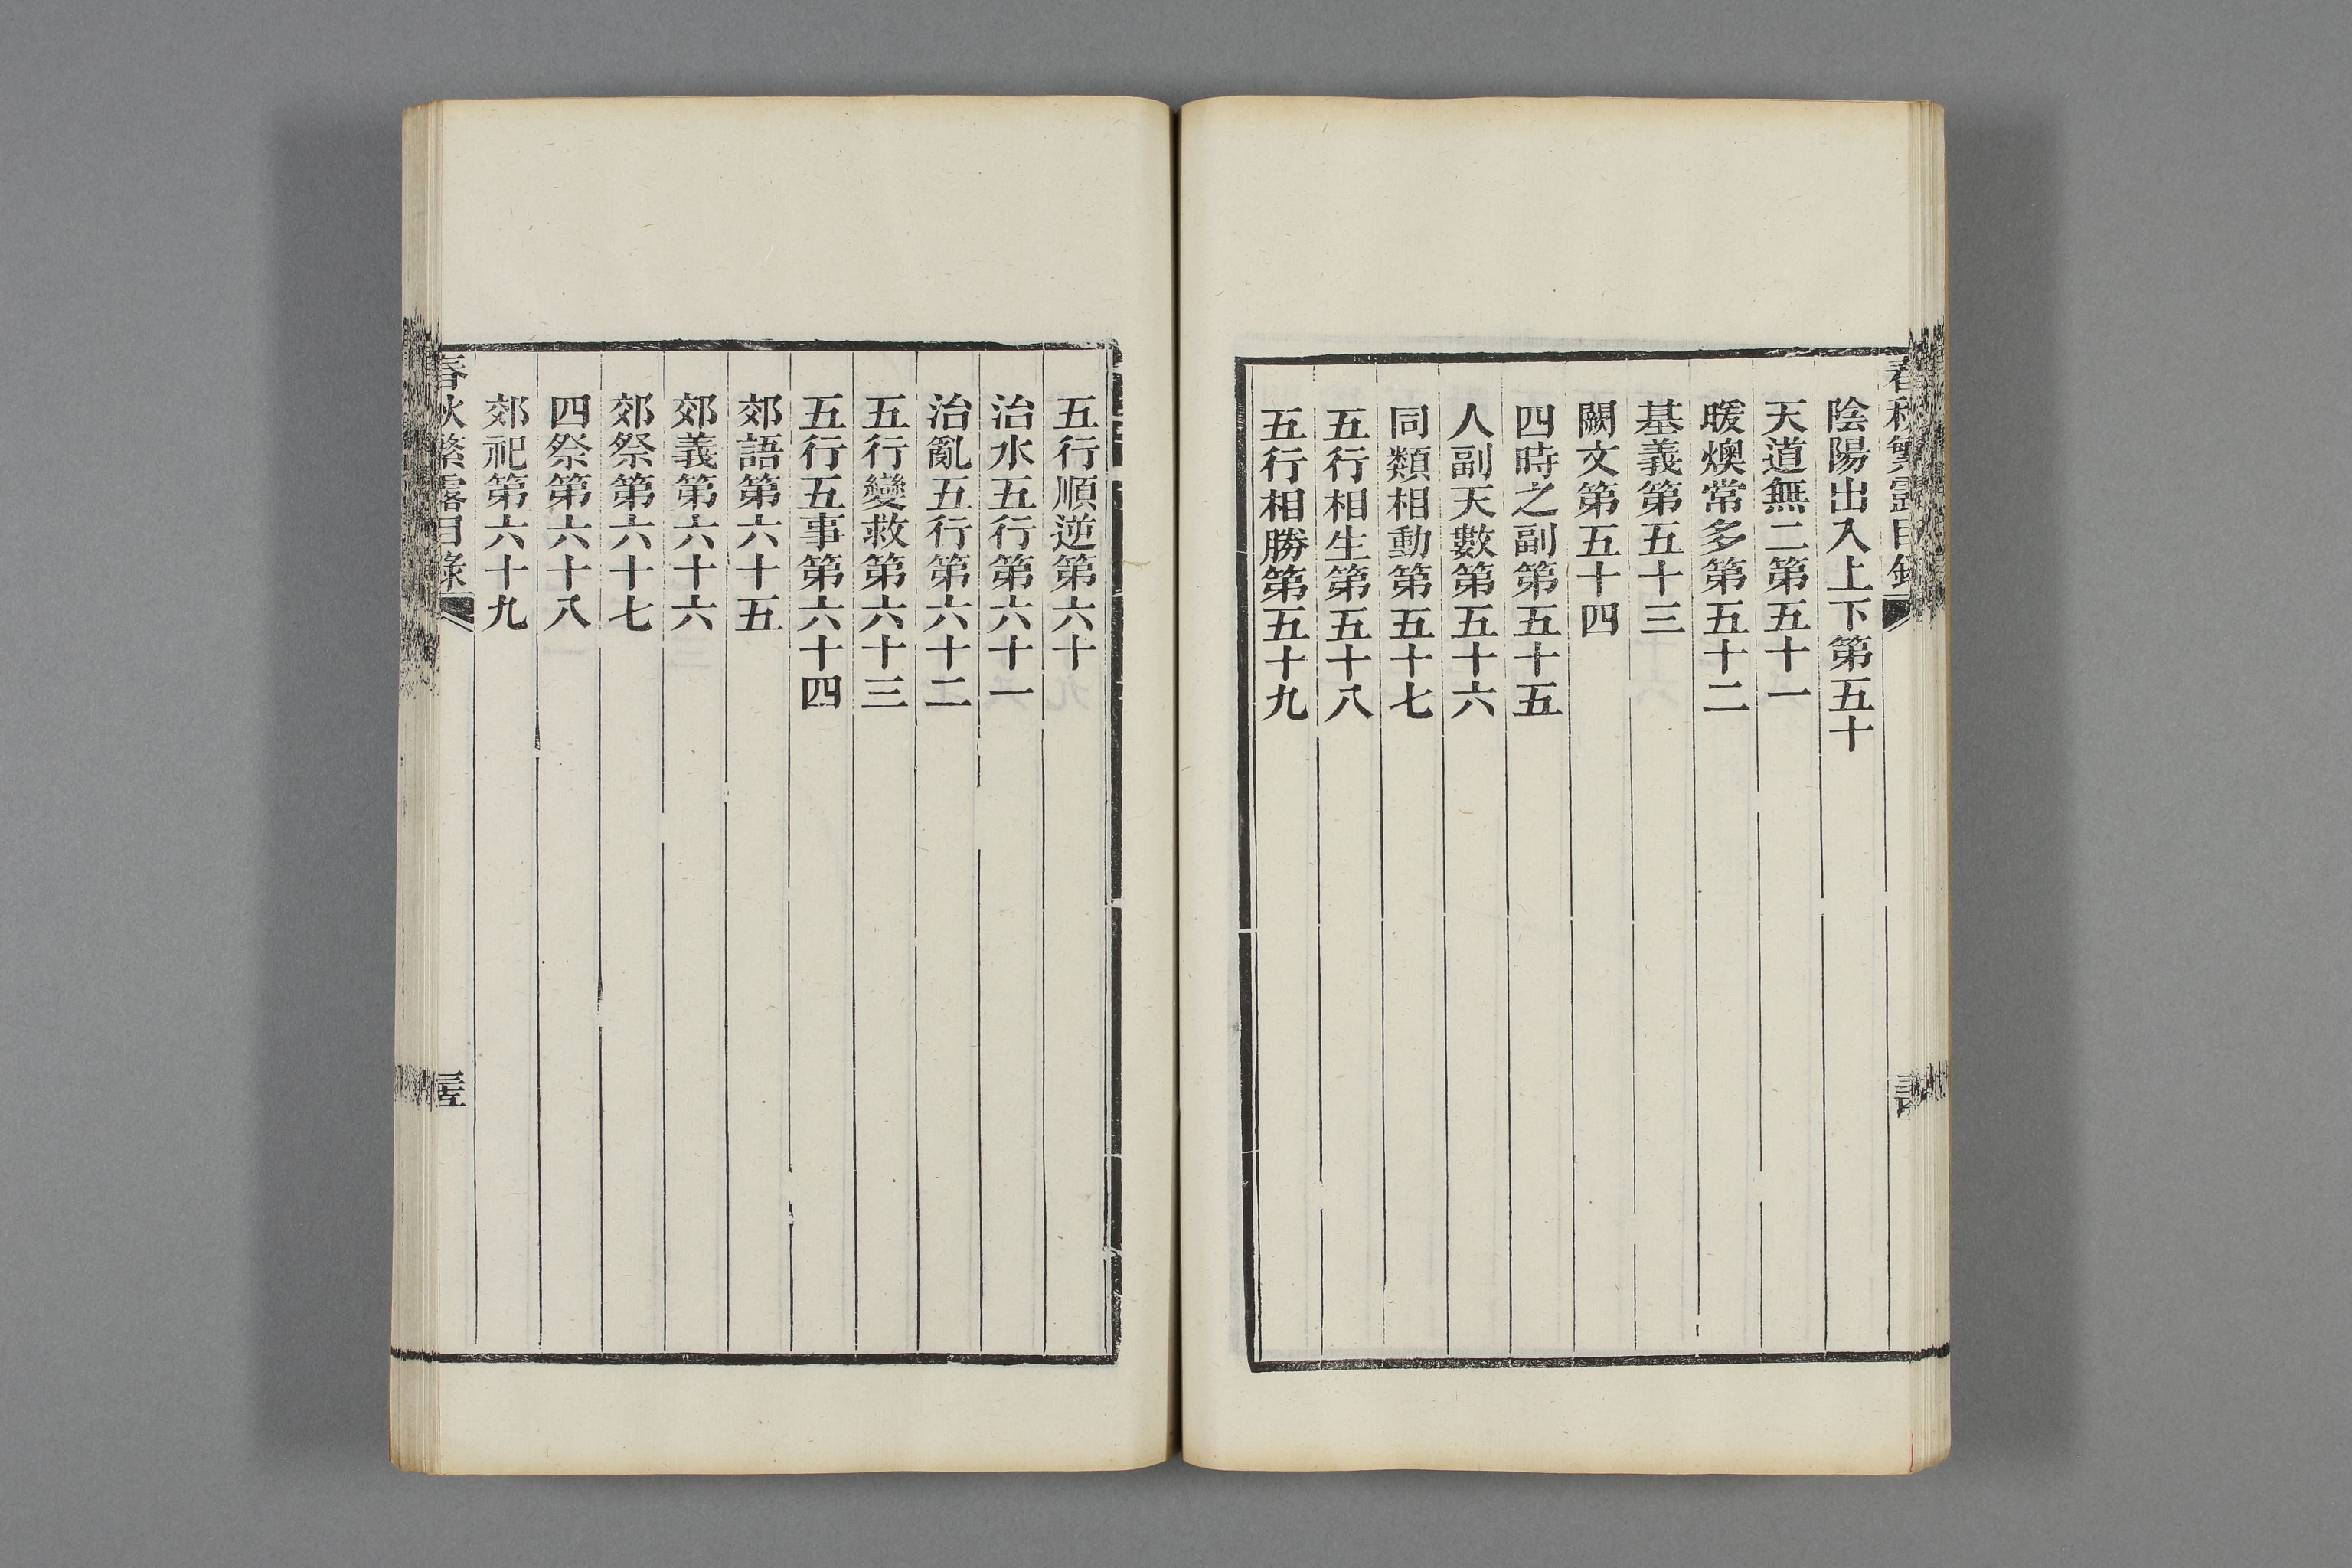 春秋繁露目錄
陰陽出入上下第五十
天道無二第五十一
暖燠常多第五十二
基義第五十三
闕文第五十四
四時之副第五十五
人副天數第五十六
同類相動第五十七
五行相生第五十八
五行相勝第五十九
五行順逆第六十
治水五行第六十一
治亂五行第六十二
五行變救第六十三
五行五事第六十四
郊語第六十五
郊義第六十六
郊祭第六十七
四祭第六十八
郊祀第六十九
春秋繁露目錄